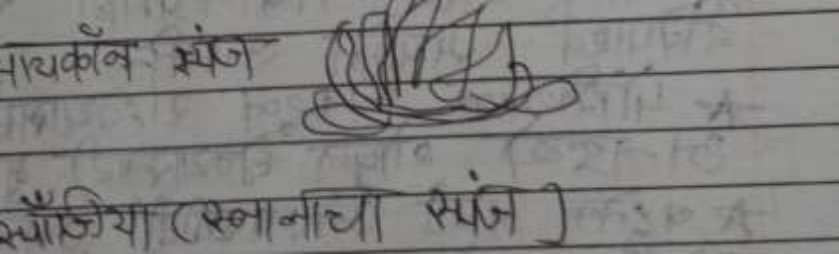 सायकॉन स्पंज
स्पाँजिया (स्नानाचा स्पंज )